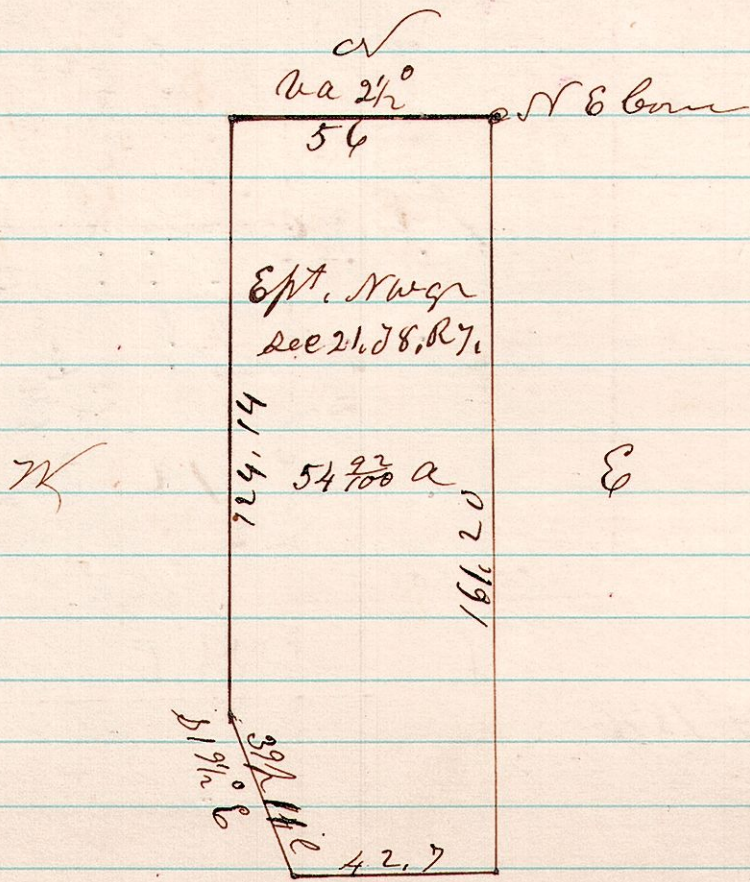 N
Va 2 1/2°
N E Corn
56
E pt. N w qr
sec 21, T 8, R 7,
W
124. 14
54 92/100 a
E
161. 20
S 19 1/2° E
39 p 14 l
42. 7